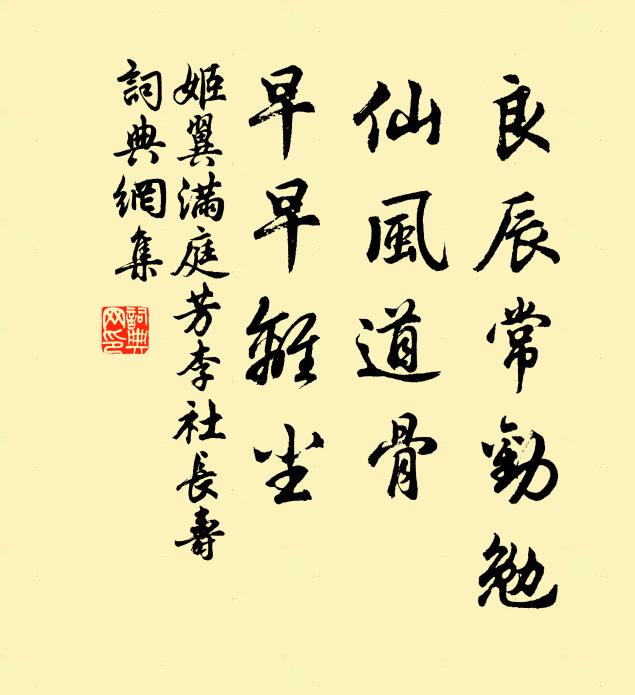 良辰常勸勉
仙風道骨
早早離尘
姬翼满庭芳李社長壽
詞典網集
詞典网印